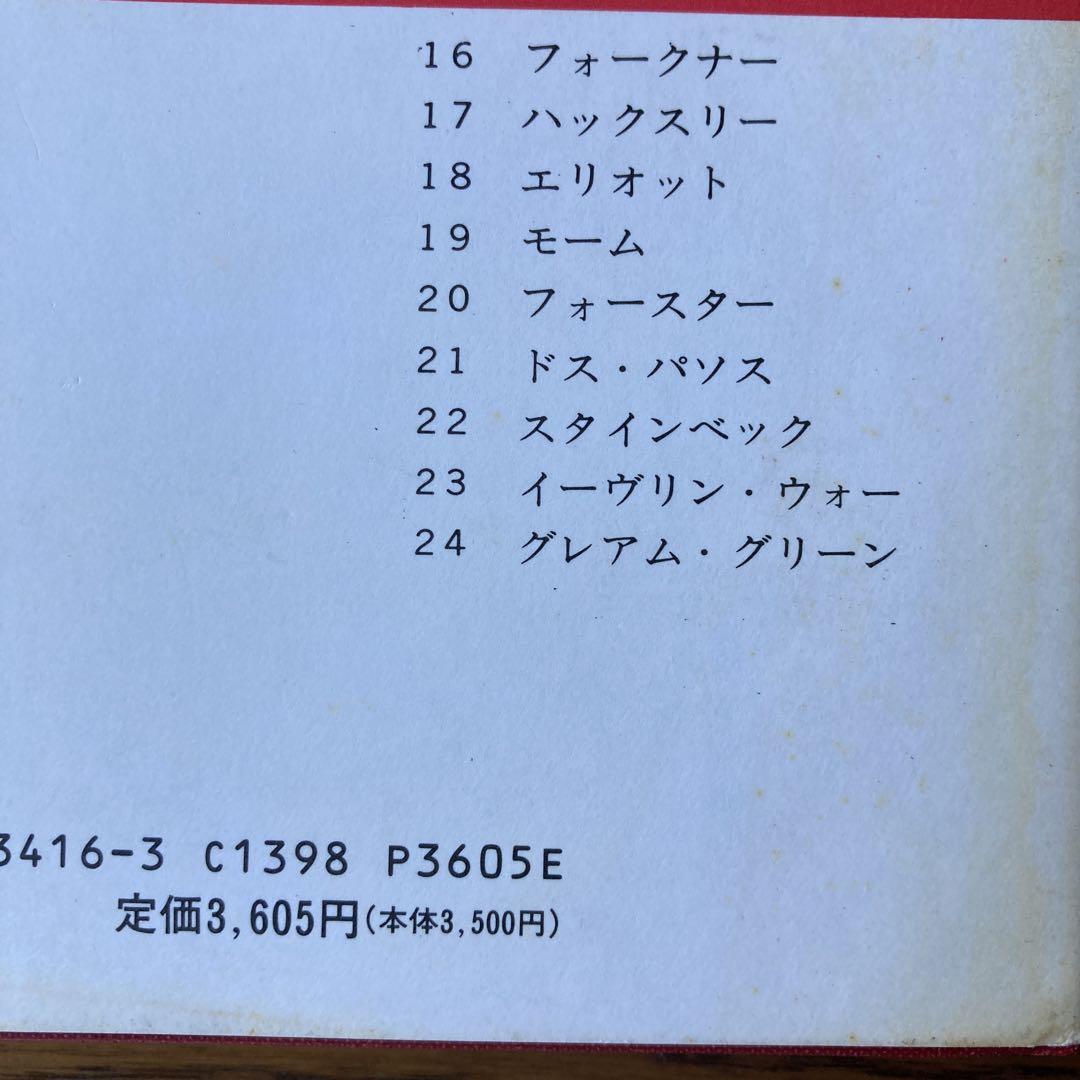 16 フォークナー
17 ハックスリー
18 エリオット
19 モーム
20 フォースター
21 ドス・パソス
22 スタインベック
23 イーヴリン・ウォー
24 グレアム・グリーン
3416-3 C1398 P3605E
定価3,605円(本体3,500円)